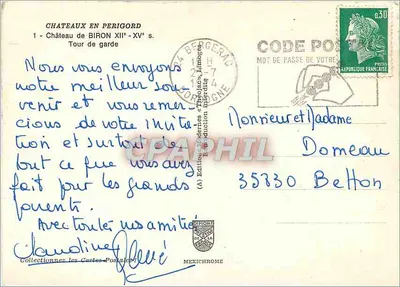 CHATEAUX EN PERIGORD
1 - Château de BIRON XIIe - XVe s.
Tour de garde
Nous vous envoyons
notre meilleur sou-
venir et vous remer-
cions de votre invita-
tion et surtout de
tout ce que vous avez
fait pour les grands
parents.
Avec toutes nos amitiés
Claudine René
Collectionnez les Cartes Postales
MEXICHROME
24 BERGERAC
DORDOGNE
CODE POSTAL
MOT DE PASSE DE VOTRE
0,30
REPUBLIQUE FRANCAISE
Monsieur et Madame
Domeau
35830 Betton
CPAPHIL